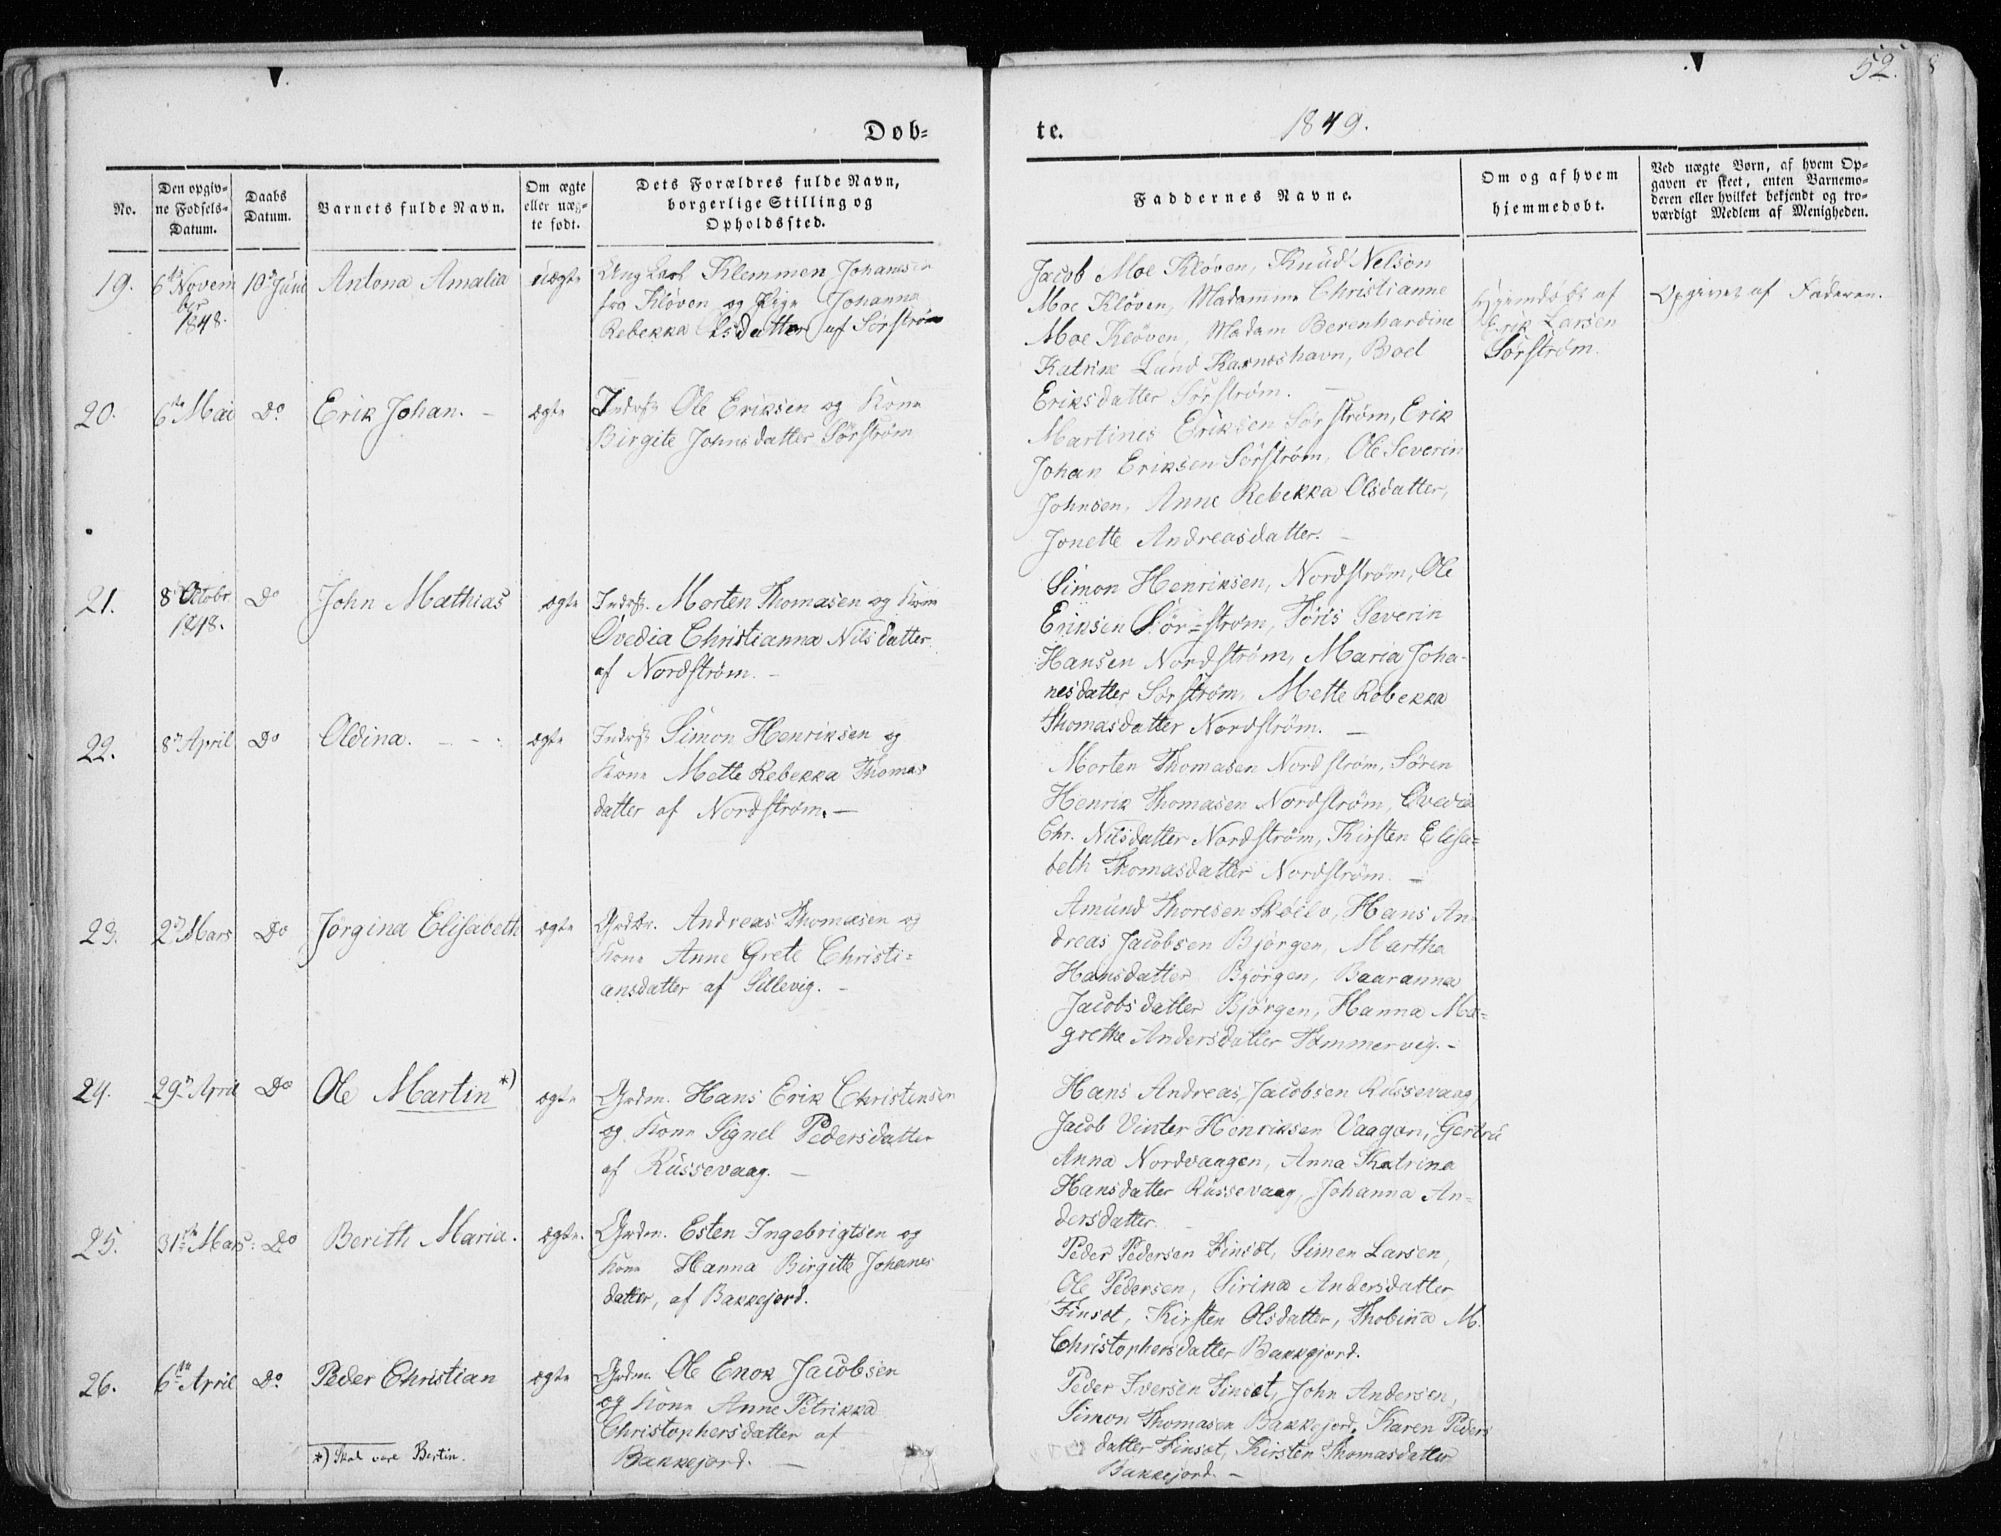 52.
Døb-
te.
1849.
No.
Den opgiv-
ne Fødsels-
Datum.
Daabs
Datum.
Barnets fulde Navn.
Om ægte
eller uæg-
te født.
Dets Forældres fulde Navn,
borgerlige Stilling og
Opholdssted.
Faddernes Navne.
Om og af hvem
hjemmedøbt.
Ved uægte Børn, af hvem Op-
gaven er skeet, enten Barnemo-
deren eller hvilket bekjendt og tro-
værdigt Medlem af Menigheden.
19.
6te Novem
br
1848.
10de Juni
Antona Amalia
uægte
Ungkarl Klemmen Johansen
fra Kløven og Pige Johanna
Rebekka Elsdatter af Sørstrøm
Jacob Moe Kløven, Knud Nelson
Moe Kløven, Madamme Christianne
Moe Kløven, Madam Berenhardine
Katrine Lund Karnæshavn, Boel
Eriksdatter Sørstrøm. —
Hjemdøbt af
Erik Larsen
Sørström.
Opgivet af Faderen.
20.
6te Mai
Do
Erik Johan. —
ægte
Indrst Ole Eriksen og Kone
Birgite Johnsdatter Sørstrøm
Martines Eriksen Sørstrøm, Erik
Johan Eriksen Sørstrøm, Ole Severin
Johnsen, Anne Rebekka Olsdatter,
Jonette Andreasdatter. —
21.
8 Octobr
1848.
Do
John Mathias
ægte
Indrst. Morten Thomasen og Kone
Ovedia Christianna Nilsdatter
af Nordstrøm. —
Simon Henriksen, Nordstrøm, Ole
Eriksen Sør=strøm, Jöris Severin
Hansen Nordstrøm, Maria Joha-
nesdatter Sørstrøm, Mette Rebekka
Thomasdatter Nordstrøm. —
22.
8de April
Do
Oldina. — - -
ægte
Indrst Simon Henriksen og
Kone Mette Rebekka Thomas
datter af Nordstrøm. —
Morten Thomasen Nordstrøm, Søren
Henrik Thomasen Nordstrøm, Ovedia
Chr. Nilsdatter Nordstrøm, Kirsten Elisa=
beth Thomasdatter Nordstrøm. —
23.
2de Mars
Do
Jørgina Elisabeth
ægte
Grdbr. Andreas Thomasen og
Kone Anne Grete Christi=
ansdatter af Sillevig. —
Amund Thoresen Skølv, Hans An-
dreas Jacobsen Bjørgen, Martha
Hansdatter Bjørgen, Baaranna
Jacobsdatter Bjørgen, Hanna Ma=
grethe Andersdatter Tømmervig. —
24.
29de April
Do
Ole Martin *)
ægte
Grdm. Hans Erik Christensen
og Kone Signel Pedersdatter
af Russevaag. —
Hans Andreas Jacobsen Russevaag
Jacob Vinter Henriksen Vaagen, Gertru
Anna Nordvaagen, Anna Katrina
Hansdatter Russevaag, Johanna An-
dersdatter.
25.
31te Mars:
Do
Berith Maria.
ægte.
Grdm. Esten Ingebrigtsen og
Kone Hanna Birgitte Johanes
datter, af Bakkejord.
Peder Pedersen Finsæt, Simen Larsen,
Ole Pedersen, Sirina Andersdatter
Finsæt, Kirsten Olsdatter, Thobina M.
Christophersdatter Bakkejord.
26.
6te April
Do.
Peder Christian
ægte
Grdm. Ole Enok Jacobsen
og Kone Anne Petrikka
Christophersdatter af
Bakkejord. —
Peder Iversen Finsæt, John Andersen,
Simon Thomasen Bakkejord, Karen Peders
datter Finsæt, Kirsten Thomasdatter
Bakkejord. —
*) Skal være Bertin.